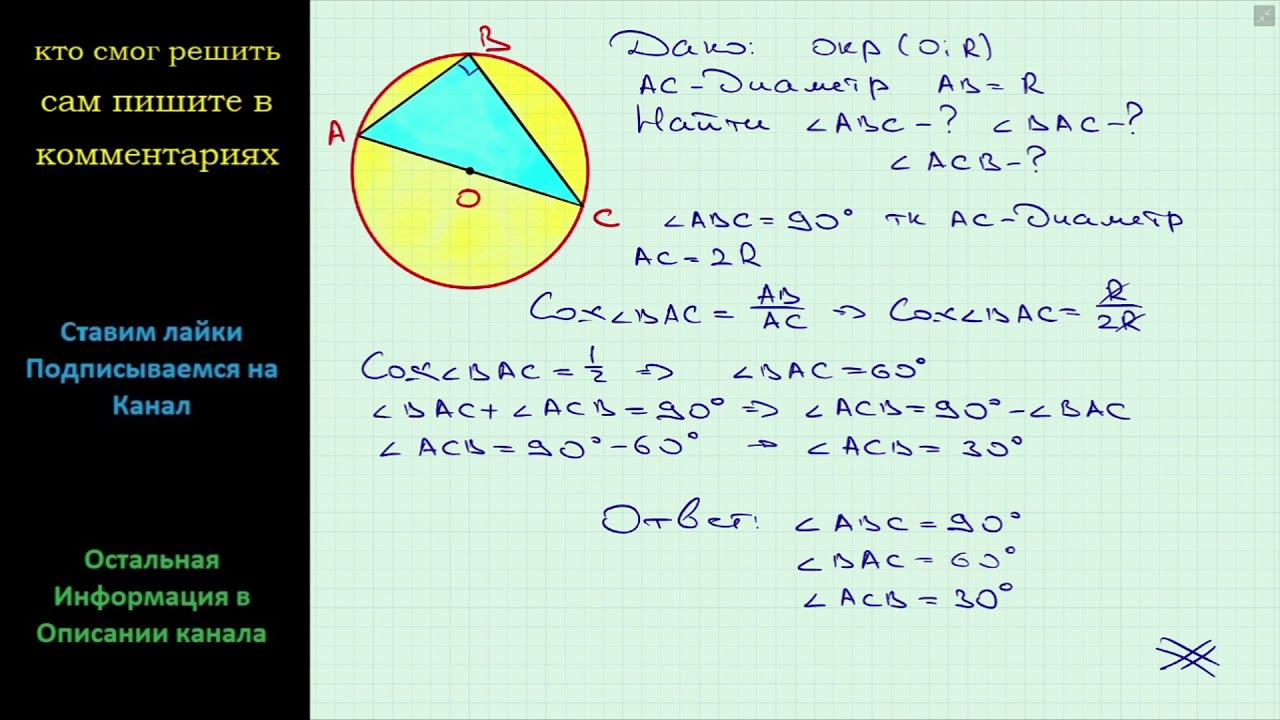 кто смог решить
сам пишите в
комментариях
Ставим лайки
Подписываемся на
Канал
Остальная
Информация в
Описании канала
A
B
C
O
Дано: окр (O; R)
AC - Диаметр AB = R
Найти ∠ABC - ? ∠BAC - ?
∠ACB - ?
∠ABC = 90° тк AC - Диаметр
AC = 2R
Cos∠BAC = AB/AC ⇒ Cos∠BAC = R/2R
Cos∠BAC = 1/2 ⇒ ∠BAC = 60°
∠BAC + ∠ACB = 90° ⇒ ∠ACB = 90° - ∠BAC
∠ACB = 90° - 60° ⇒ ∠ACB = 30°
Ответ: ∠ABC = 90°
∠BAC = 60°
∠ACB = 30°